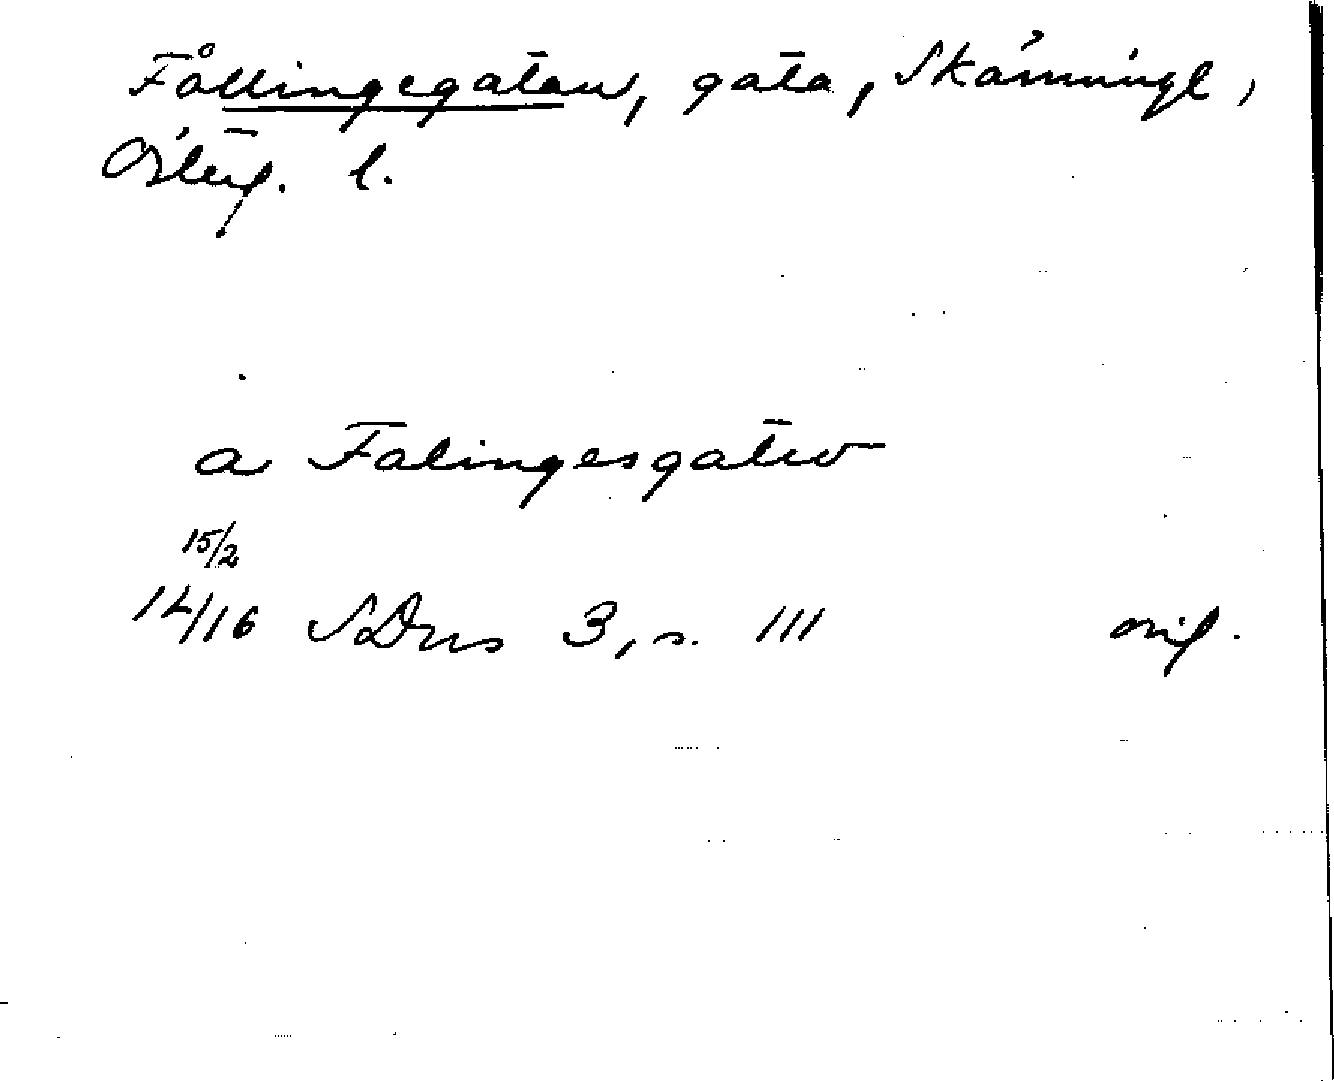 Fållingegatan, gata, Skänninge,
Österg. l.
a Falingesgatw
15/2
14/16 SDns 3, s. 111 orig.